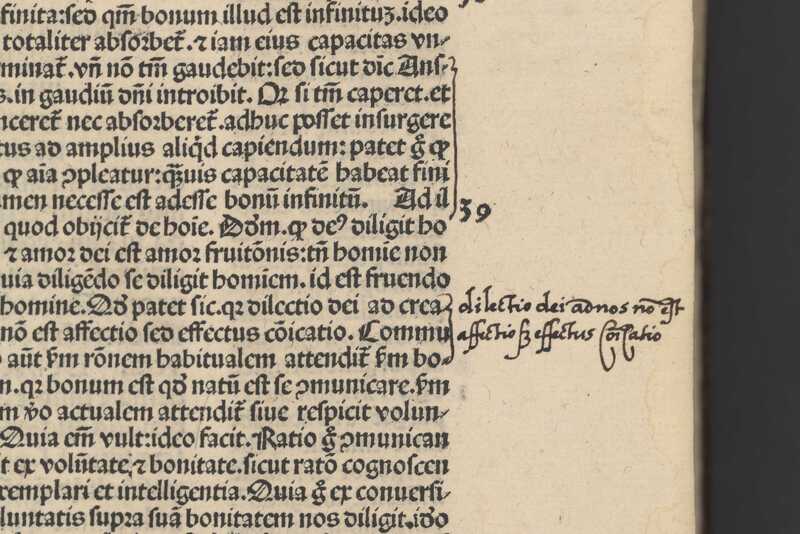 finita:sed qm̄ bonum illud est infinituꝫ.ideo
totaliter absorbet̄.⁊ iam eius capacitas vn-
minat̄.vn̄ nō tm̄ gaudebit:sed sicut dīc Ans-
s.in gaudiū dn̄i introibit. Qꝛ si tm̄ caperet.et
nceret nec absorberet̄.adhuc posset insurgere
tus ad amplius aliq̇d capiendum: patet g̊ ꝙ
ꝙ aīa ꝯpleatur:qꝫuis capacitatē habeat fini
men necesse est adesse bonū infinitū. Ad il
quod obijcit̄ de hoīe. Dōm.ꝙ deꝰ diligit ho
⁊ amor dei est amor fruitōnis:tn̄ homīe non
uia diligēdo se diligit homīem. id est fruendo
homine. Ad̄ patet sic.qꝛ dilectio dei ad crea
nō est affectio sed effectus cōicatio. Commu
aūt ẜm rōnem habitualem attendit̄ ẜm bo-
n.qꝛ bonum est qd̄ natū est se ꝯmunicare.ẜm
m ṽo actualem attendit̄ siue respicit volun-
Quia em̄ vult:ideo facit. Ratio g̊ ꝯmunican
it ex volūtate,⁊ bonitate.sicut ratō cognoscen
xemplari et intelligentia. Quia g̊ ex conuersi-
luntatis supra suā bonitatem nos diligit.idō
39
dilectio dei ad nos nō est
affectio sꝫ effectus cōicatio